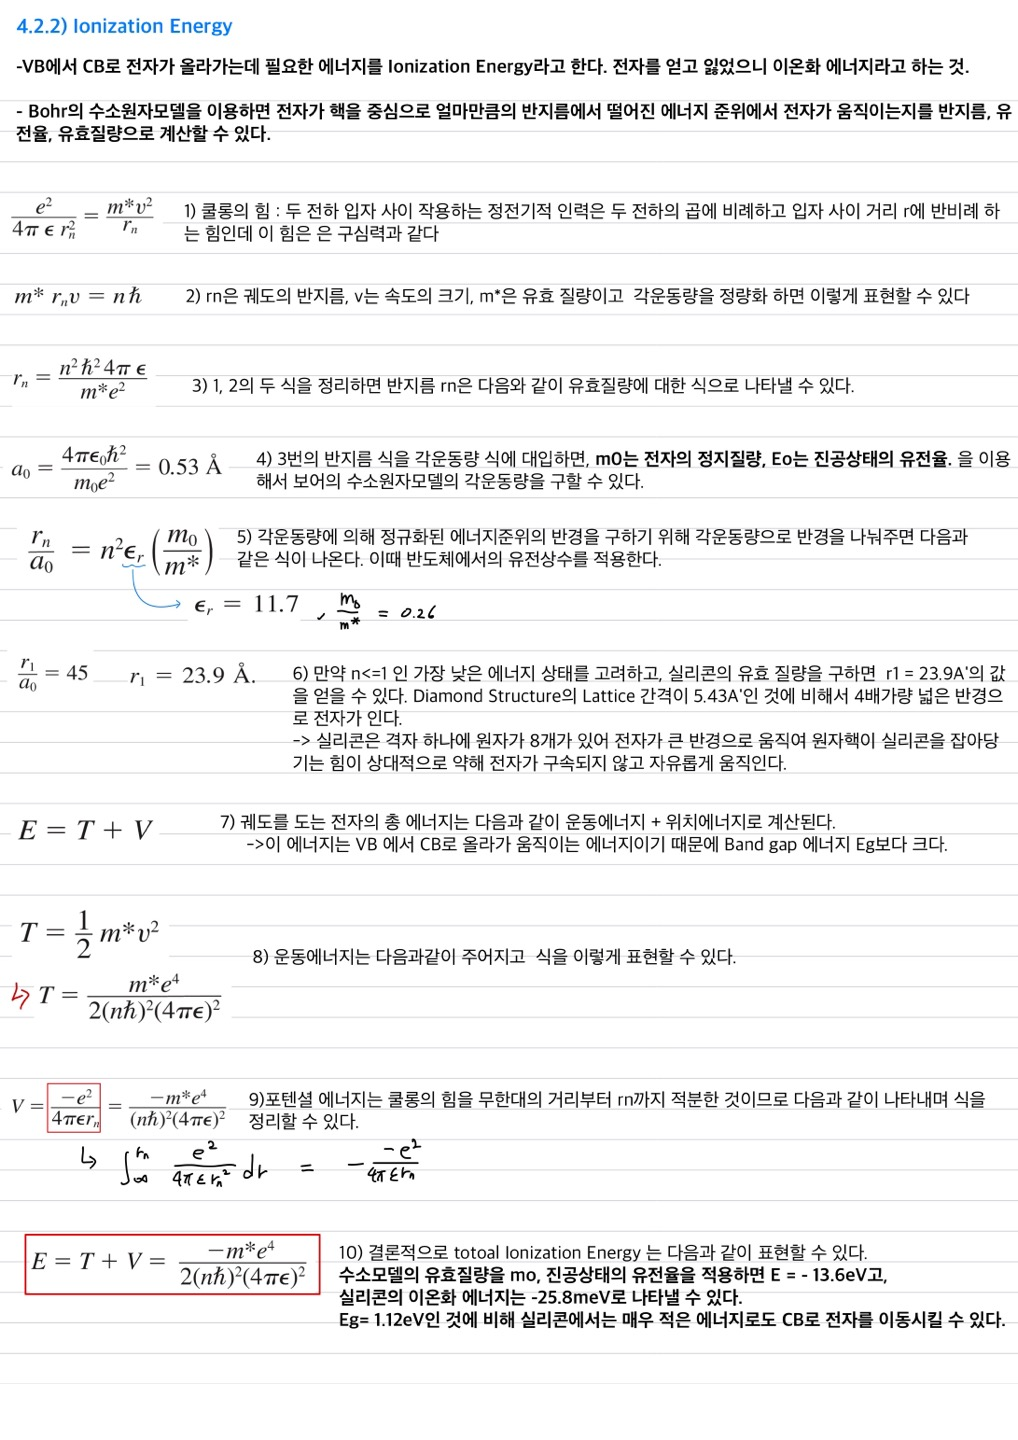 4.2.2) Ionization Energy
-VB에서 CB로 전자가 올라가는데 필요한 에너지를 Ionization Energy라고 한다. 전자를 얻고 잃었으니 이온화 에너지라고 하는 것.
- Bohr의 수소원자모델을 이용하면 전자가 핵을 중심으로 얼마만큼의 반지름에서 떨어진 에너지 준위에서 전자가 움직이는지를 반지름, 유
전율, 유효질량으로 계산할 수 있다.
e²/(4π ϵ rₙ²) = m*v²/rₙ
1) 쿨롱의 힘 : 두 전하 입자 사이 작용하는 정전기적 인력은 두 전하의 곱에 비례하고 입자 사이 거리 r에 반비례 하
는 힘인데 이 힘은 은 구심력과 같다
m* rₙv = nħ
2) rn은 궤도의 반지름, v는 속도의 크기, m*은 유효 질량이고 각운동량을 정량화 하면 이렇게 표현할 수 있다
rₙ = n²ħ²4π ϵ/(m*e²)
3) 1, 2의 두 식을 정리하면 반지름 rn은 다음와 같이 유효질량에 대한 식으로 나타낼 수 있다.
a₀ = 4πϵ₀ħ²/(m₀e²) = 0.53 Å
4) 3번의 반지름 식을 각운동량 식에 대입하면, m0는 전자의 정지질량, Eo는 진공상태의 유전율. 을 이용
해서 보어의 수소원자모델의 각운동량을 구할 수 있다.
rₙ/a₀ = n²ϵᵣ(m₀/m*)
5) 각운동량에 의해 정규화된 에너지준위의 반경을 구하기 위해 각운동량으로 반경을 나눠주면 다음과
같은 식이 나온다. 이때 반도체에서의 유전상수를 적용한다.
ϵᵣ = 11.7 , m₀/m* = 0.26
r₁/a₀ = 45 r₁ = 23.9 Å.
6) 만약 n<=1 인 가장 낮은 에너지 상태를 고려하고, 실리콘의 유효 질량을 구하면 r1 = 23.9A'의 값
을 얻을 수 있다. Diamond Structure의 Lattice 간격이 5.43A'인 것에 비해서 4배가량 넓은 반경으
로 전자가 인다.
-> 실리콘은 격자 하나에 원자가 8개가 있어 전자가 큰 반경으로 움직여 원자핵이 실리콘을 잡아당
기는 힘이 상대적으로 약해 전자가 구속되지 않고 자유롭게 움직인다.
E = T + V
7) 궤도를 도는 전자의 총 에너지는 다음과 같이 운동에너지 + 위치에너지로 계산된다.
->이 에너지는 VB 에서 CB로 올라가 움직이는 에너지이기 때문에 Band gap 에너지 Eg보다 크다.
T = 1/2 m*v²
8) 운동에너지는 다음과같이 주어지고 식을 이렇게 표현할 수 있다.
↳ T = m*e⁴/(2(nħ)²(4πϵ)²)
V = -e²/(4πϵrₙ) = -m*e⁴/((nħ)²(4πϵ)²)
9)포텐셜 에너지는 쿨롱의 힘을 무한대의 거리부터 rn까지 적분한 것이므로 다음과 같이 나타내며 식을
정리할 수 있다.
↳ ∫_∞^rₙ e²/(4πεrₙ²) dr = - -e²/(4πεrₙ)
E = T + V = -m*e⁴/(2(nħ)²(4πϵ)²)
10) 결론적으로 totoal Ionization Energy 는 다음과 같이 표현할 수 있다.
수소모델의 유효질량을 mo, 진공상태의 유전율을 적용하면 E = - 13.6eV고,
실리콘의 이온화 에너지는 -25.8meV로 나타낼 수 있다.
Eg= 1.12eV인 것에 비해 실리콘에서는 매우 적은 에너지로도 CB로 전자를 이동시킬 수 있다.